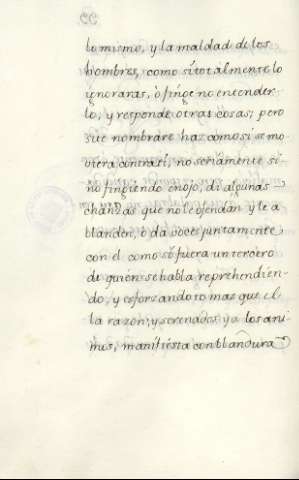 lo mismo, y la maldad de los
hombres, como si totalmente lo
ignoraras, ò finge no entender
lo, y responde otras cosas; pero
si te nombrare haz como si se mo
viera contra ti, no seriamente si
no fingiendo enojo, di algunas
chanzas que no le ofendan y le a
blanden, ò da voces juntamente
con el como si fuera un tercero
de quien se habla reprehendien
do, y esforzando to mas que el
la razon; y serenados ya los ani
mos, manifiesta con blandura